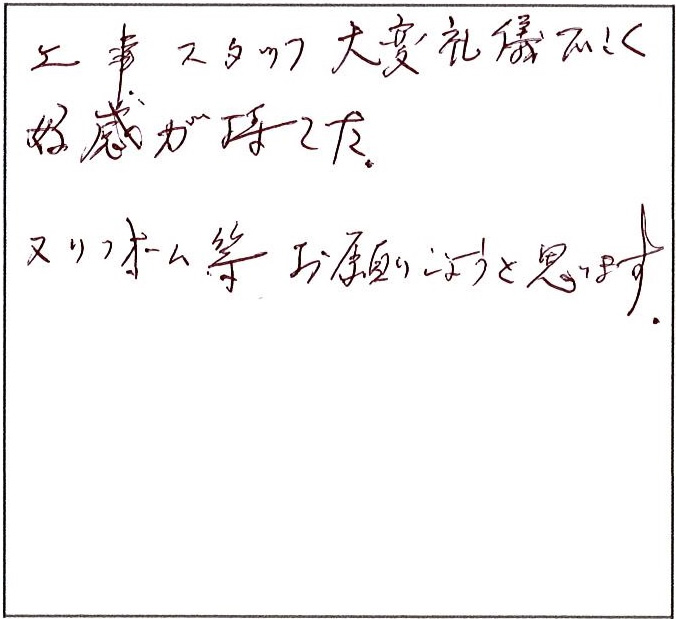 工事スタッフ大変礼儀正しく
好感が持てた.
又リフォーム等お願いしようと思います.